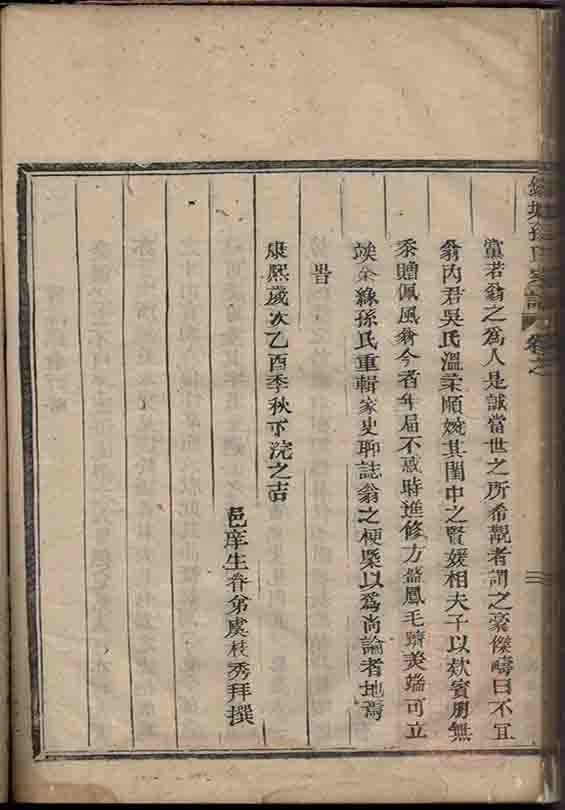 黨若翁之為人是誠當世之所希覯者謂之豪傑疇曰不宜
翁內君吳氏溫柔順婉其閨中之賢媛相夫子以欵賓朋無
忝贈佩風翁今者年屆不惑時進修方盛鳳毛躋美端可立
竢余緣孫氏重輯家史聊誌翁之梗槩以為尚論者地焉
旹
康熙歲次乙酉季秋下浣之吉
邑庠生眷弟虞枝秀拜撰
孫氏
卷之